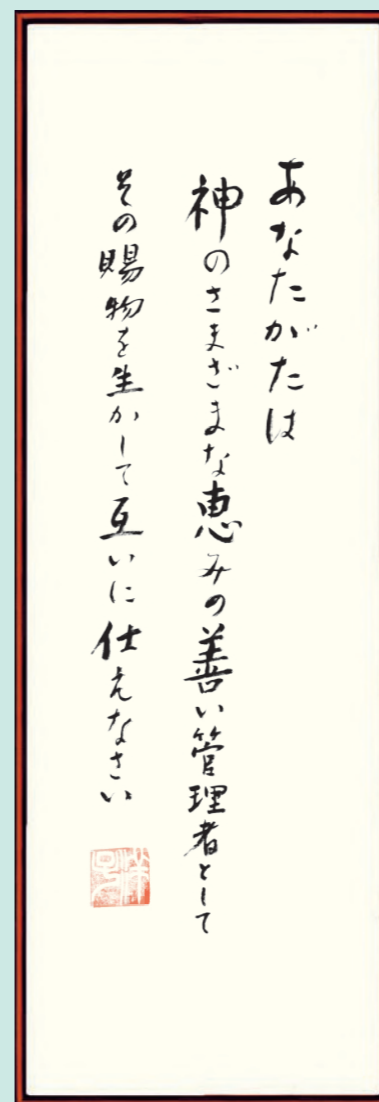 あなたがたは
神のさまざまな恵みの善い管理者として
その賜物を生かして互いに仕えなさい